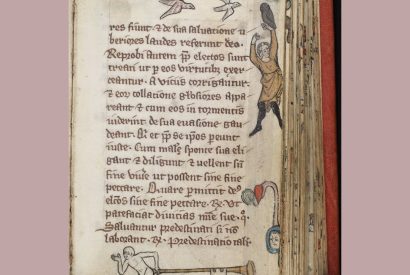 res fiunt ⁊ de sua saluatione u
beriores laudes referunt deo.
Reprobi autem ꝓp̄ electos sunt
creati ut ꝑ eos uirtutibꝫ exer
ceantur. A uiciis corrigantur.
⁊ eoꝝ collatione gl̄osiores appa
reant ⁊ cum eos in tormentis
uiderint de sua euasione gau
deant. Et ꝓp̄ se ip̄os pereunt
iuste. Cum malū sponte sua eli
gant ⁊ diligunt ⁊ uellent sine
fine uiuere ut possent sine fine
peccare. Quare permittit deꝰ
electos sine fine peccare. Ut
patefaciat diuicias mīe sue. q̄
Saluantur predestinati si nō
laborant. Predestinatio tali